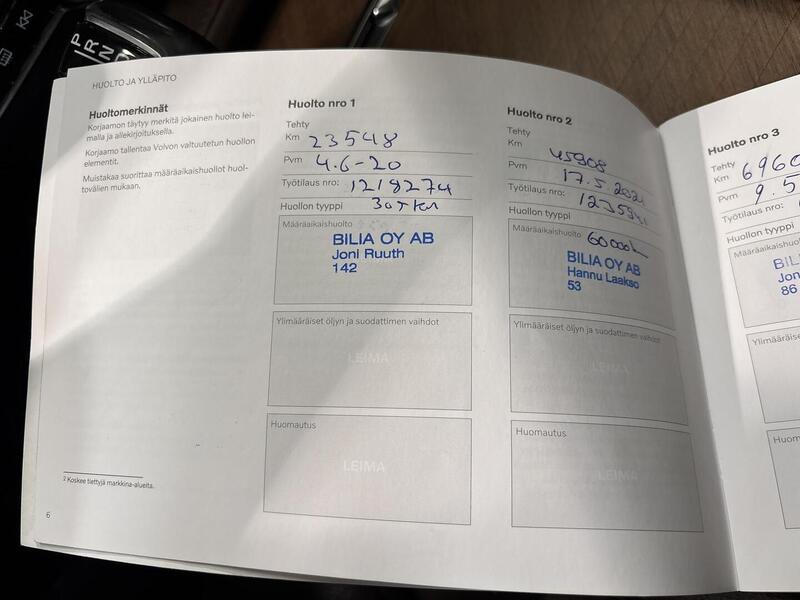 P
R
N
HUOLTO JA YLLÄPITO
Huoltomerkinnät
Korjaamon täytyy merkitä jokainen huolto lei-
malla ja allekirjoituksella.
Korjaamo tallentaa Volvon valtuutetun huollon
elementit.
Muistakaa suorittaa määräaikaishuollot huol-
tovälien mukaan.
2 Koskee tiettyjä markkina-alueita.
6
Huolto nro 1
Tehty
Km 23548
Pvm 4.6-20
Työtilaus nro: 1218274
Huollon tyyppi 30 tkm
Määräaikaishuolto
BILIA OY AB
Joni Ruuth
142
Ylimääräiset öljyn ja suodattimen vaihdot
LEIMA
Huomautus
LEIMA
Huolto nro 2
Tehty
Km 45908
Pvm 17.5.2021
Työtilaus nro: 1235941
Huollon tyyppi
Määräaikaishuolto 60000k
BILIA OY AB
Hannu Laakso
53
Ylimääräiset öljyn ja suodattimen vaihdot
LEIMA
Huomautus
LEIMA
Huolto nro 3
Tehty
Km 6960
Pvm 9.5
Työtilaus nro:
Huollon tyyppi
Määräaikaishuolto
BIL
Jon
86
Ylimääräise
Huom